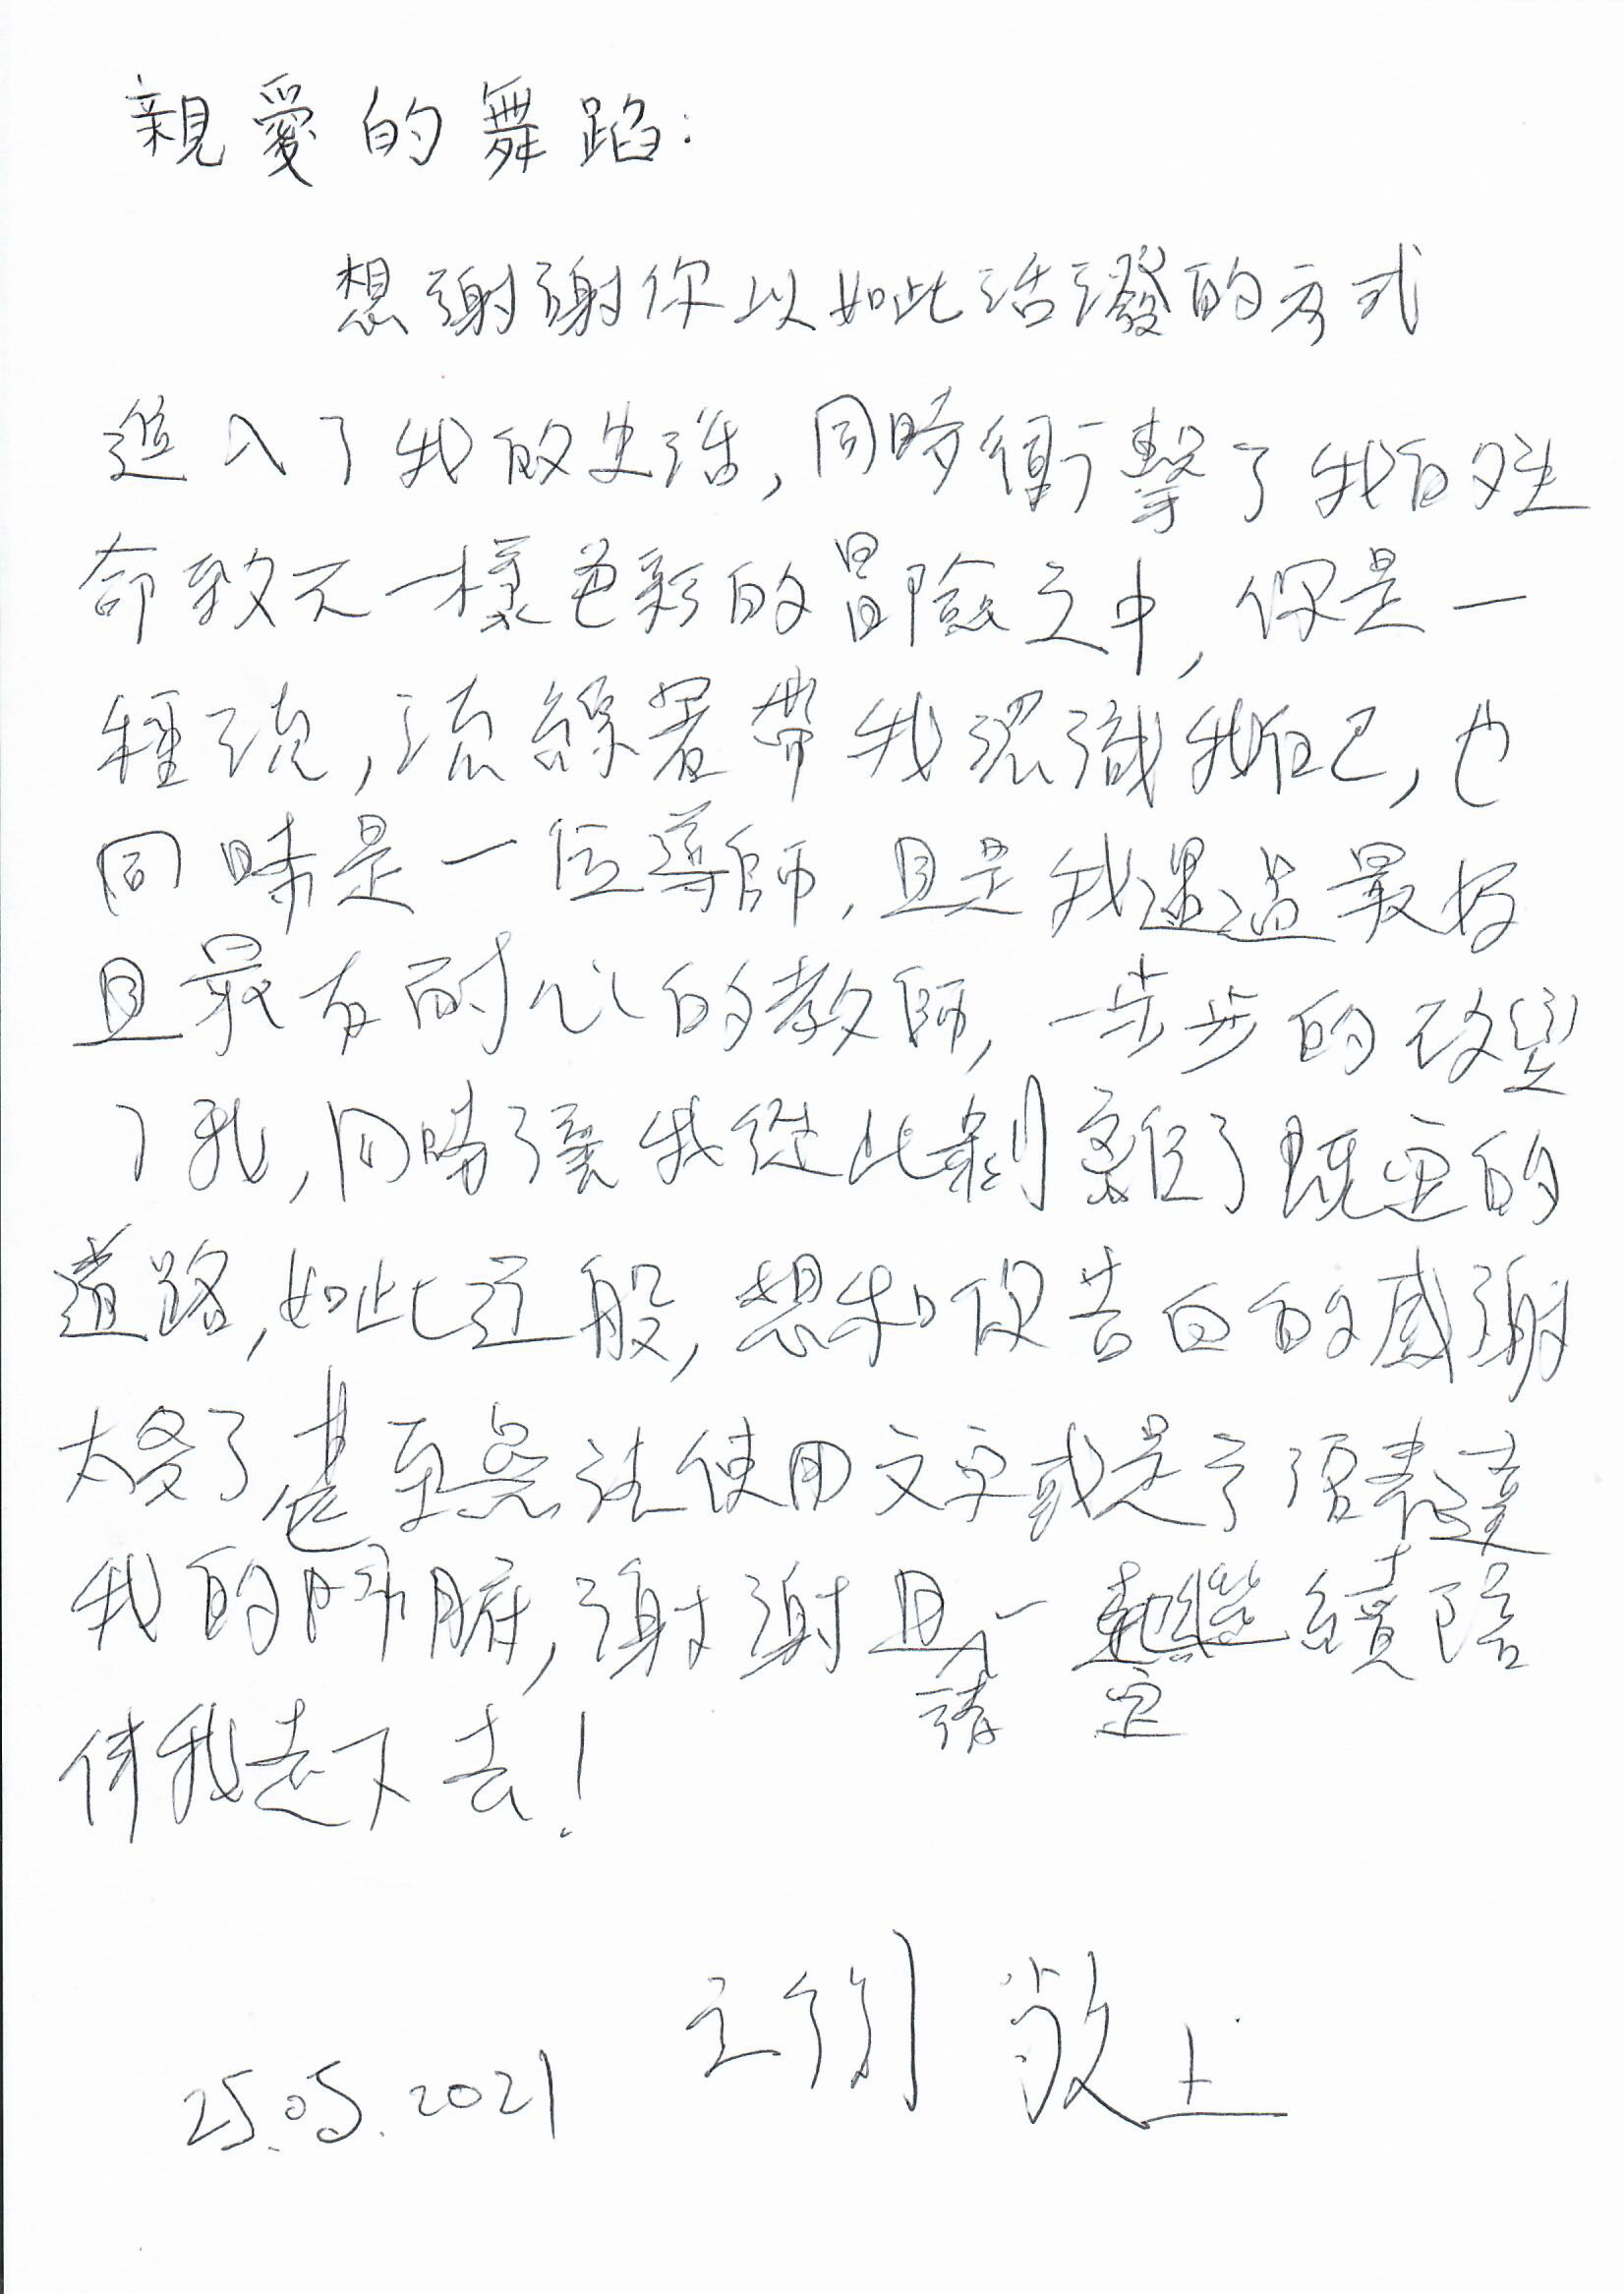 親愛的舞蹈:
想謝謝你以如此活潑的方式
進入了我的生活,同時衝擊了我的生
命致不一樣色彩的冒險之中,你是一
種流,流線著帶我認識我自己,也
同時是一位導師,且是我遇過最好
且最有耐心的教師,一步步的改變
了我,同時讓我從此剝離了既定的
道路,如此這般,想和你告白的感謝
太多了甚至無法使用文字或是言語表達
我的肺腑,謝謝且請一定繼續陪
伴我走下去!
敬上
25.05.2021